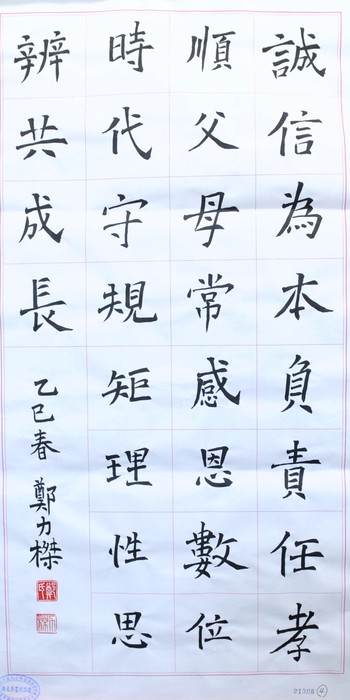 誠信為本負責任孝
順父母常感恩數位
時代守規矩理性思
辨共成長
乙巳春 鄭力榤
21526 ④